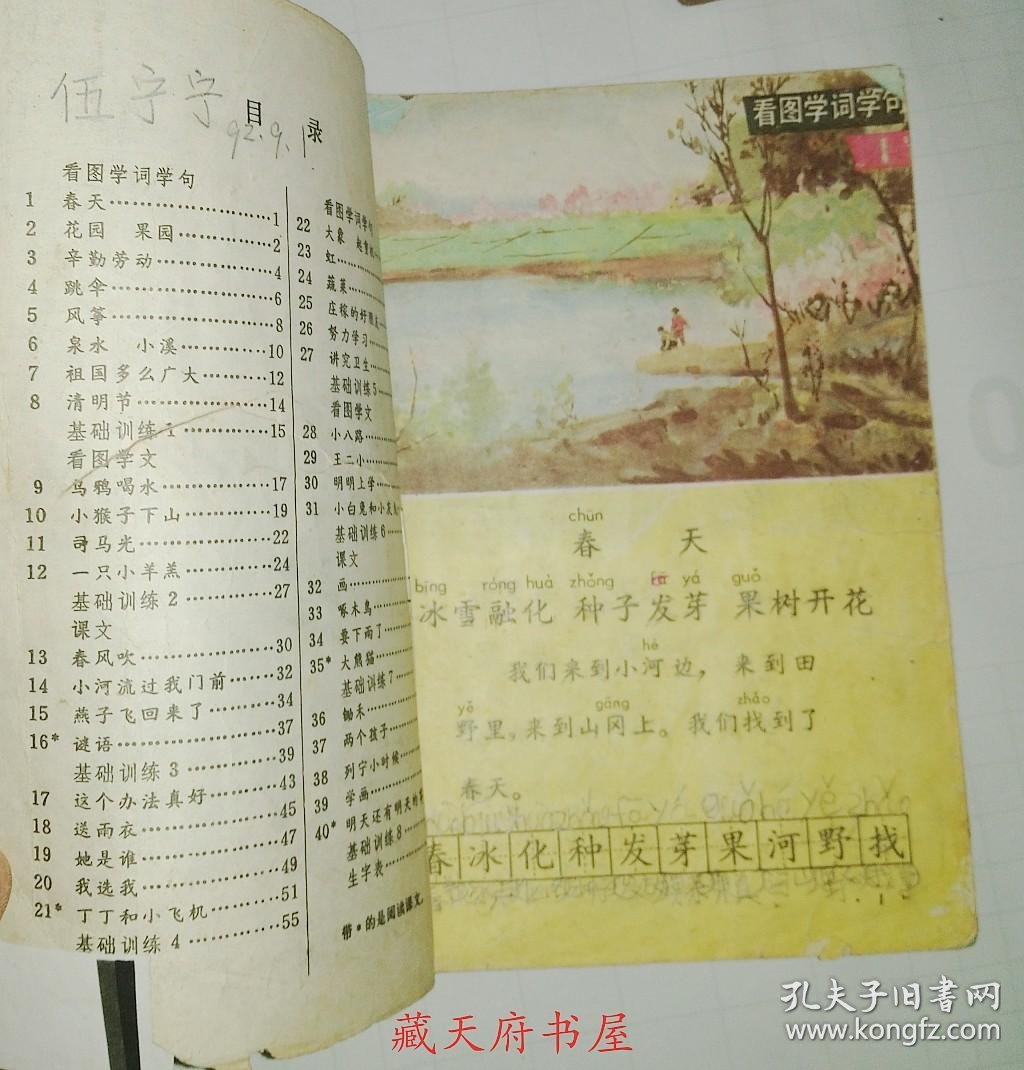 伍宁宁
目录
92.9.1
看图学词学句
1 春天……1
2 花园 果园……2
3 辛勤劳动……4
4 跳伞……6
5 风筝……8
6 泉水 小溪……10
7 祖国多么广大……12
8 清明节……14
基础训练1……15
看图学文
9 乌鸦喝水……17
10 小猴子下山……19
11 司马光……22
12 一只小羊羔……24
基础训练2……27
课文
13 春风吹……30
14 小河流过我门前……32
15 燕子飞回来了……34
16* 谜语……37
基础训练3……39
17 这个办法真好……43
18 送雨衣……45
19 她是谁……47
20 我选我……49
21* 丁丁和小飞机……51
基础训练4……55
看图学词学句
22 大象 起重机
23 虹……
24 蔬菜……
25 庄稼的好朋友
26 努力学习……
27 讲究卫生……
基础训练5……
看图学文
28 小八路……
29 王二小……
30 明明上学……
31 小白兔和小灰兔
基础训练6……
课文
32 画……
33 啄木鸟……
34 要下雨了……
35* 大熊猫……
基础训练7……
36 锄禾……
37 两个孩子……
38 列宁小时候……
39 学画……
40* 明天还有明天的
基础训练8……
生字表……
带*的是阅读课文。
看图学词学句
1
chūn
春天
bīng róng huà zhǒng fā yá guǒ
冰雪融化 种子发芽 果树开花
hé
我们来到小河边，来到田
yě gāng zhǎo
野里，来到山冈上。我们找到了
春天。
春冰化种发芽果河野找
孔夫子旧书网
www.kongfz.com
藏天府书屋